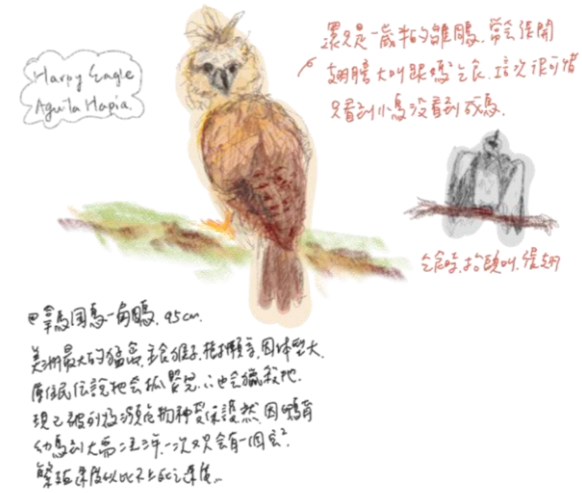 Harpy Eagle
Aguila Hapia.
還只是一歲半的雛鵰,常會張開
翅膀大叫跟媽乞食,這次很可惜
只看到小鳥沒看到成鳥.
乞食時,抬頭叫,張翅
國鳥—角鵰, 95cm.
美洲最大的猛禽,主食猴子,樹懶等,因体型大,
原住民傳說牠會抓嬰兒,也會獵殺牠.
現已被列為瀕危物種受保護 因
幼鳥到大需二至三年,一次只會有一個
繁殖速度 比不上 速度~